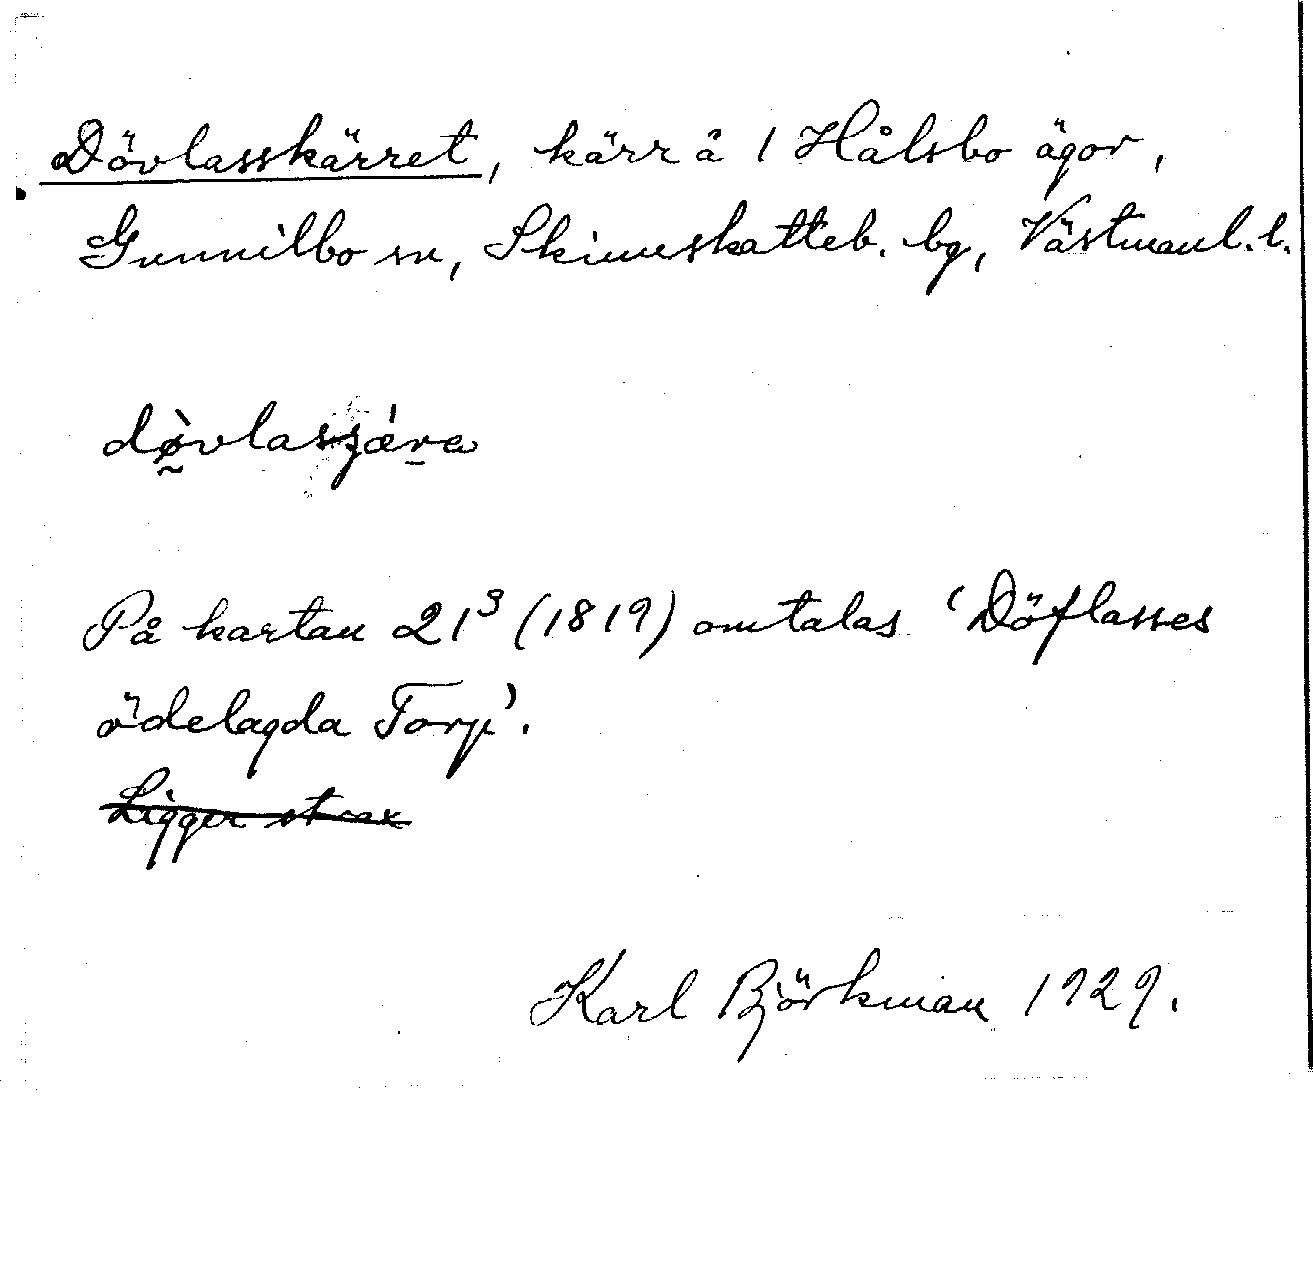 Dövlasskärret, kärr å 1 Hålsbo ägor,
Gunnilbo sn, Skinnskatteb. bg, Västmanl. l.
dø̀vlasʂæ̍ra
På kartan 21³ (1819) omtalas 'Döflasses
ödelagda Torp'.
Ligger strax
Karl Björkman 1929.